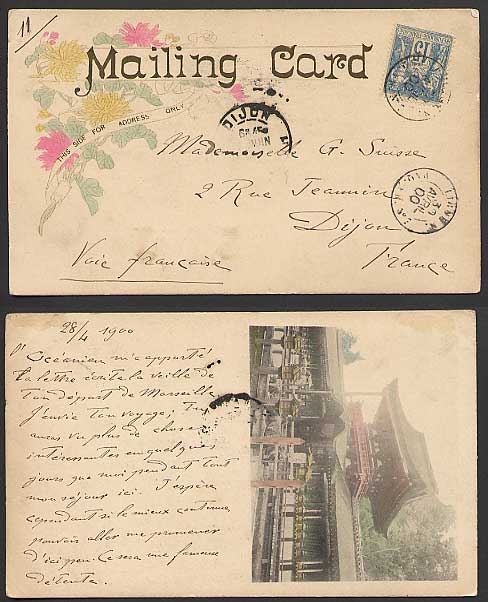 11
Mailing Card
THIS SIDE FOR ADDRESS ONLY
15
DIJON
Mademoiselle G. Suisse
2 Rue Jeannin
Dijon
France
Voie française
30
AVRIL
00
28/4 1900
L'Océanien m'a apporté
ta lettre écrite la veille de
ton départ de Marseille
J'envie ton voyage; Tu
auras vu plus de choses
intéressantes en quelques
jours que moi pendant tout
mon séjour ici. J'espère
cependant si le mieux continue
pouvoir aller me promener
d'ici peu. Ce sera une fameuse
détente.